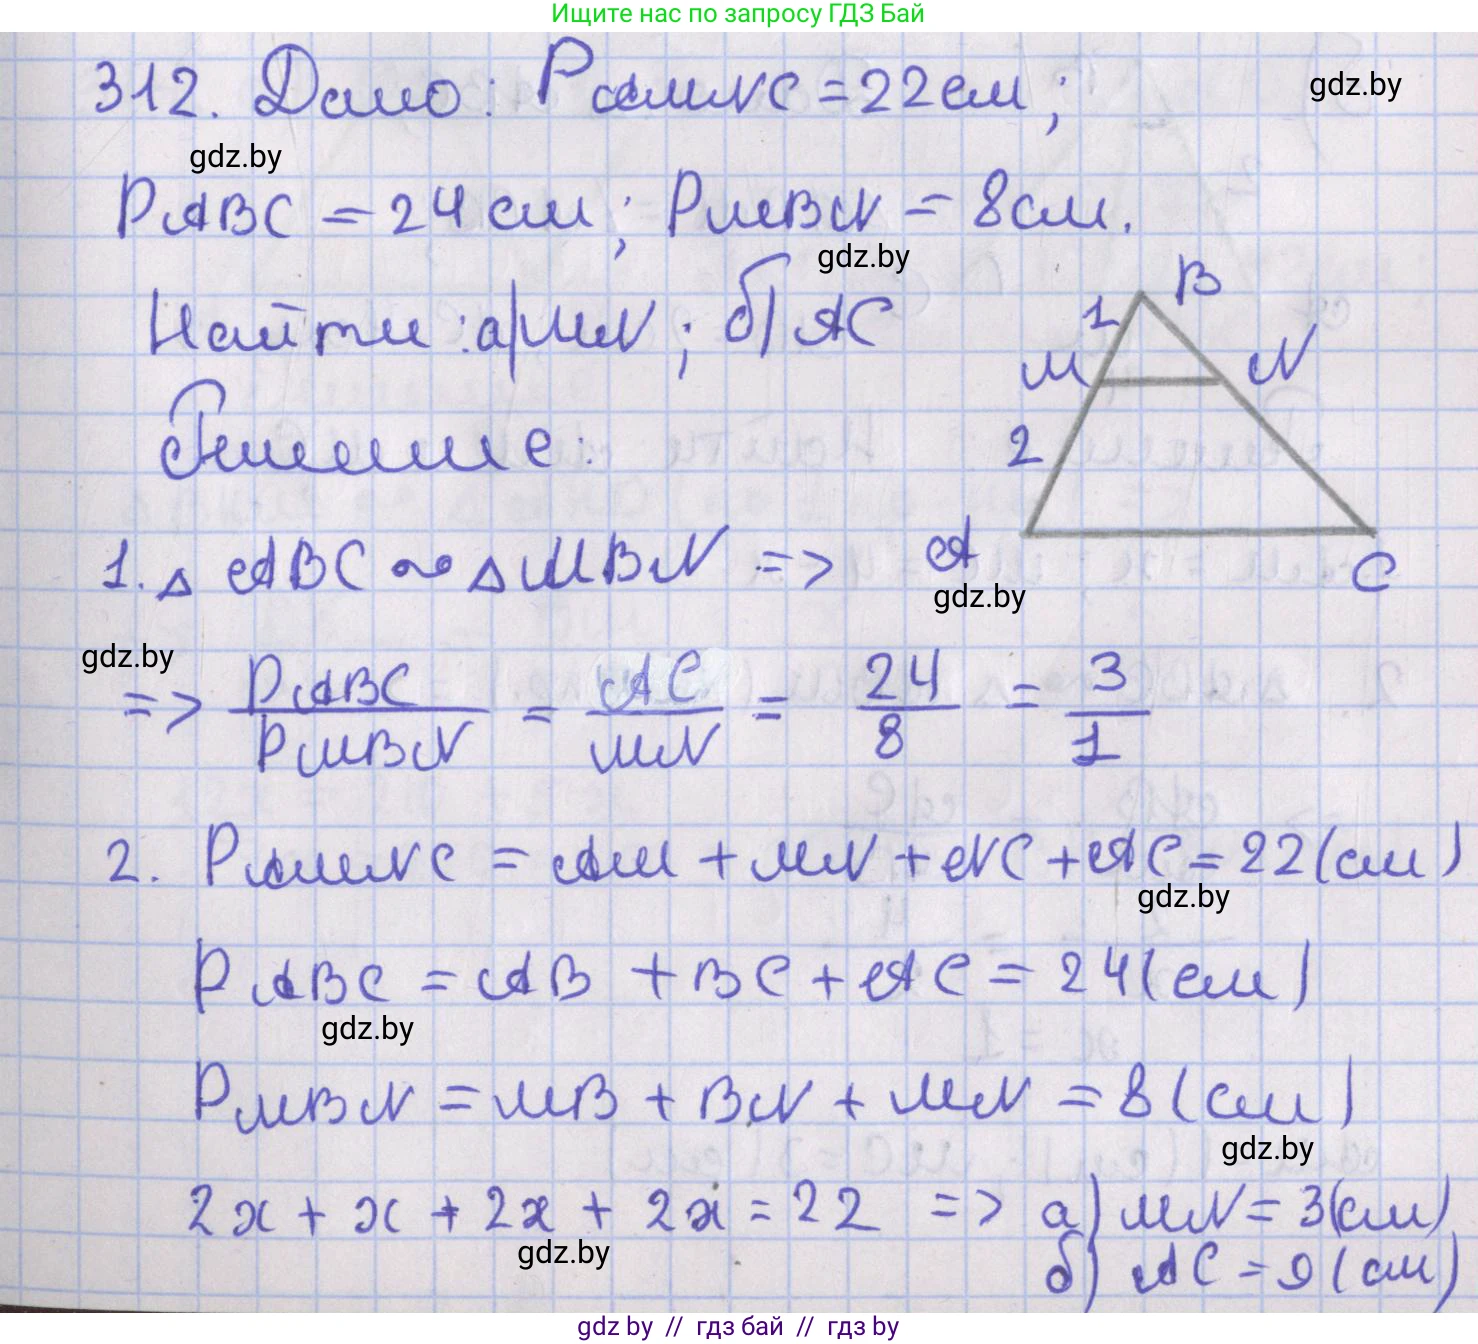 Ищите нас по запросу ГДЗ Бай
312. Дано: PAMNC = 22 см;
gdz.by
gdz.by
PABC = 24 см; PMBN = 8 см.
gdz.by
Найти: а) MN; б) AC
B
1
M
N
2
A
C
Решение:
1. △ ABC ~ △ MBN =>
gdz.by
gdz.by
=> PABC / PMBN = AC / MN = 24 / 8 = 3 / 1
2. PAMNC = AM + MN + NC + AC = 22 (см)
gdz.by
PABC = AB + BC + AC = 24 (см)
gdz.by
PMBN = MB + BN + MN = 8 (см)
gdz.by
2x + x + 2x + 2x = 22 => а) MN = 3 (см)
gdz.by
б) AC = 9 (см)
gdz by // гдз бай // гдз by